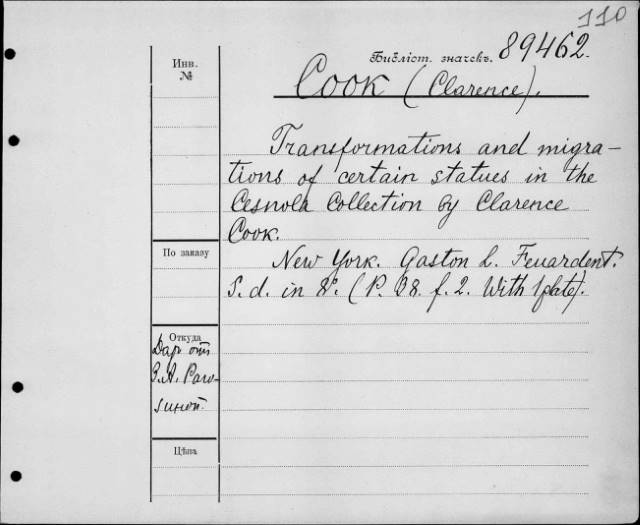 110
Библіот. значекъ. 89462.
Инв.
№
Cook (Clarence).
Transformations and migra-
tions of certain statues in the
Cesnola Collection by Clarence
Cook.
По заказу
New York. Gaston L. Feuardent.
S. d. in 8°. (P. 38. f. 2. With 1 plate).
Откуда
Даръ отъ
З.А. Раго-
зиной.
Цѣна